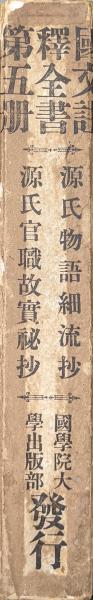 國文註
釋全書
第五册
源氏物語細流抄
源氏官職故實祕抄
國學院大
學出版部
發行